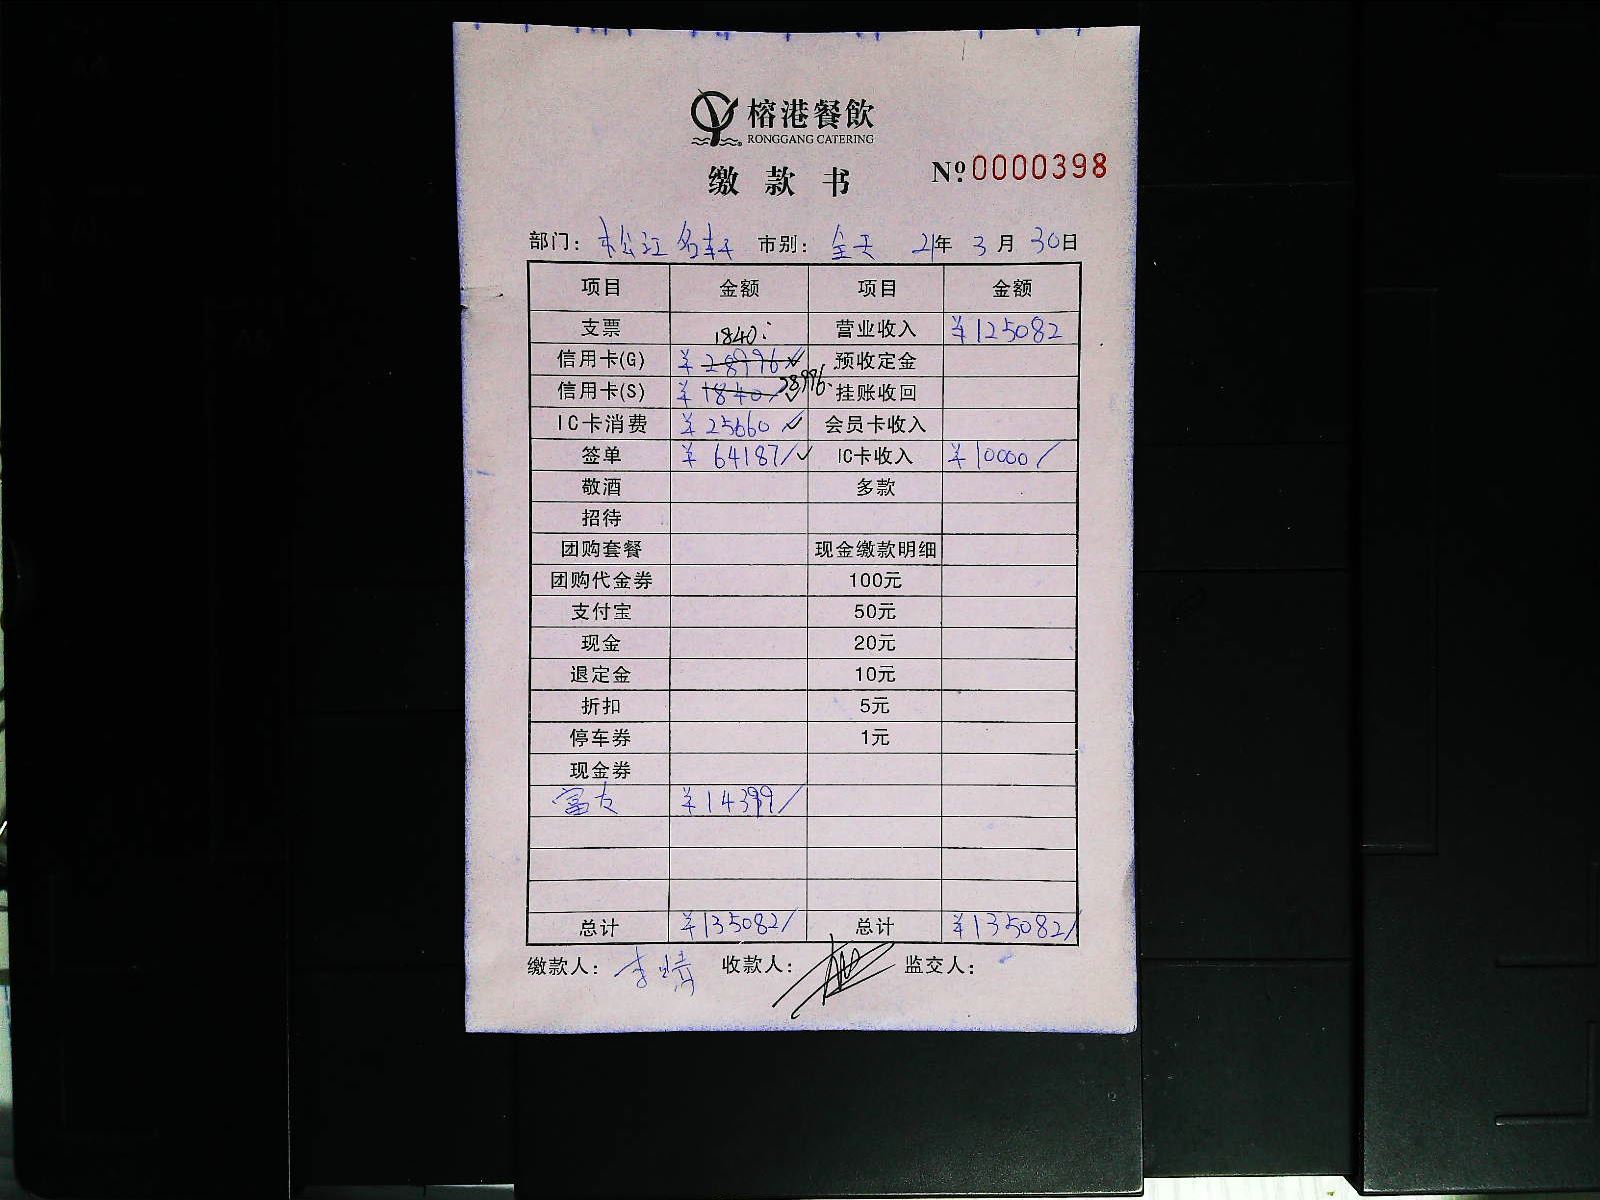 榕港餐飲
RONGGANG CATERING
缴款书 №0000398
部门：松江名轩 市别：全天 21年3月30日
项目 金额 项目 金额
支票 营业收入 ¥125082
1840
信用卡(G) ¥28996 预收定金
信用卡(S) ¥1840 28996 挂账收回
IC卡消费 ¥25660 会员卡收入
签单 ¥64187 IC卡收入 ¥10000
敬酒 多款
招待
团购套餐 现金缴款明细
团购代金券 100元
支付宝 50元
现金 20元
退定金 10元
折扣 5元
停车券 1元
现金券
富友 ¥14399
总计 ¥135082 总计 ¥135082
缴款人： 收款人： 监交人：